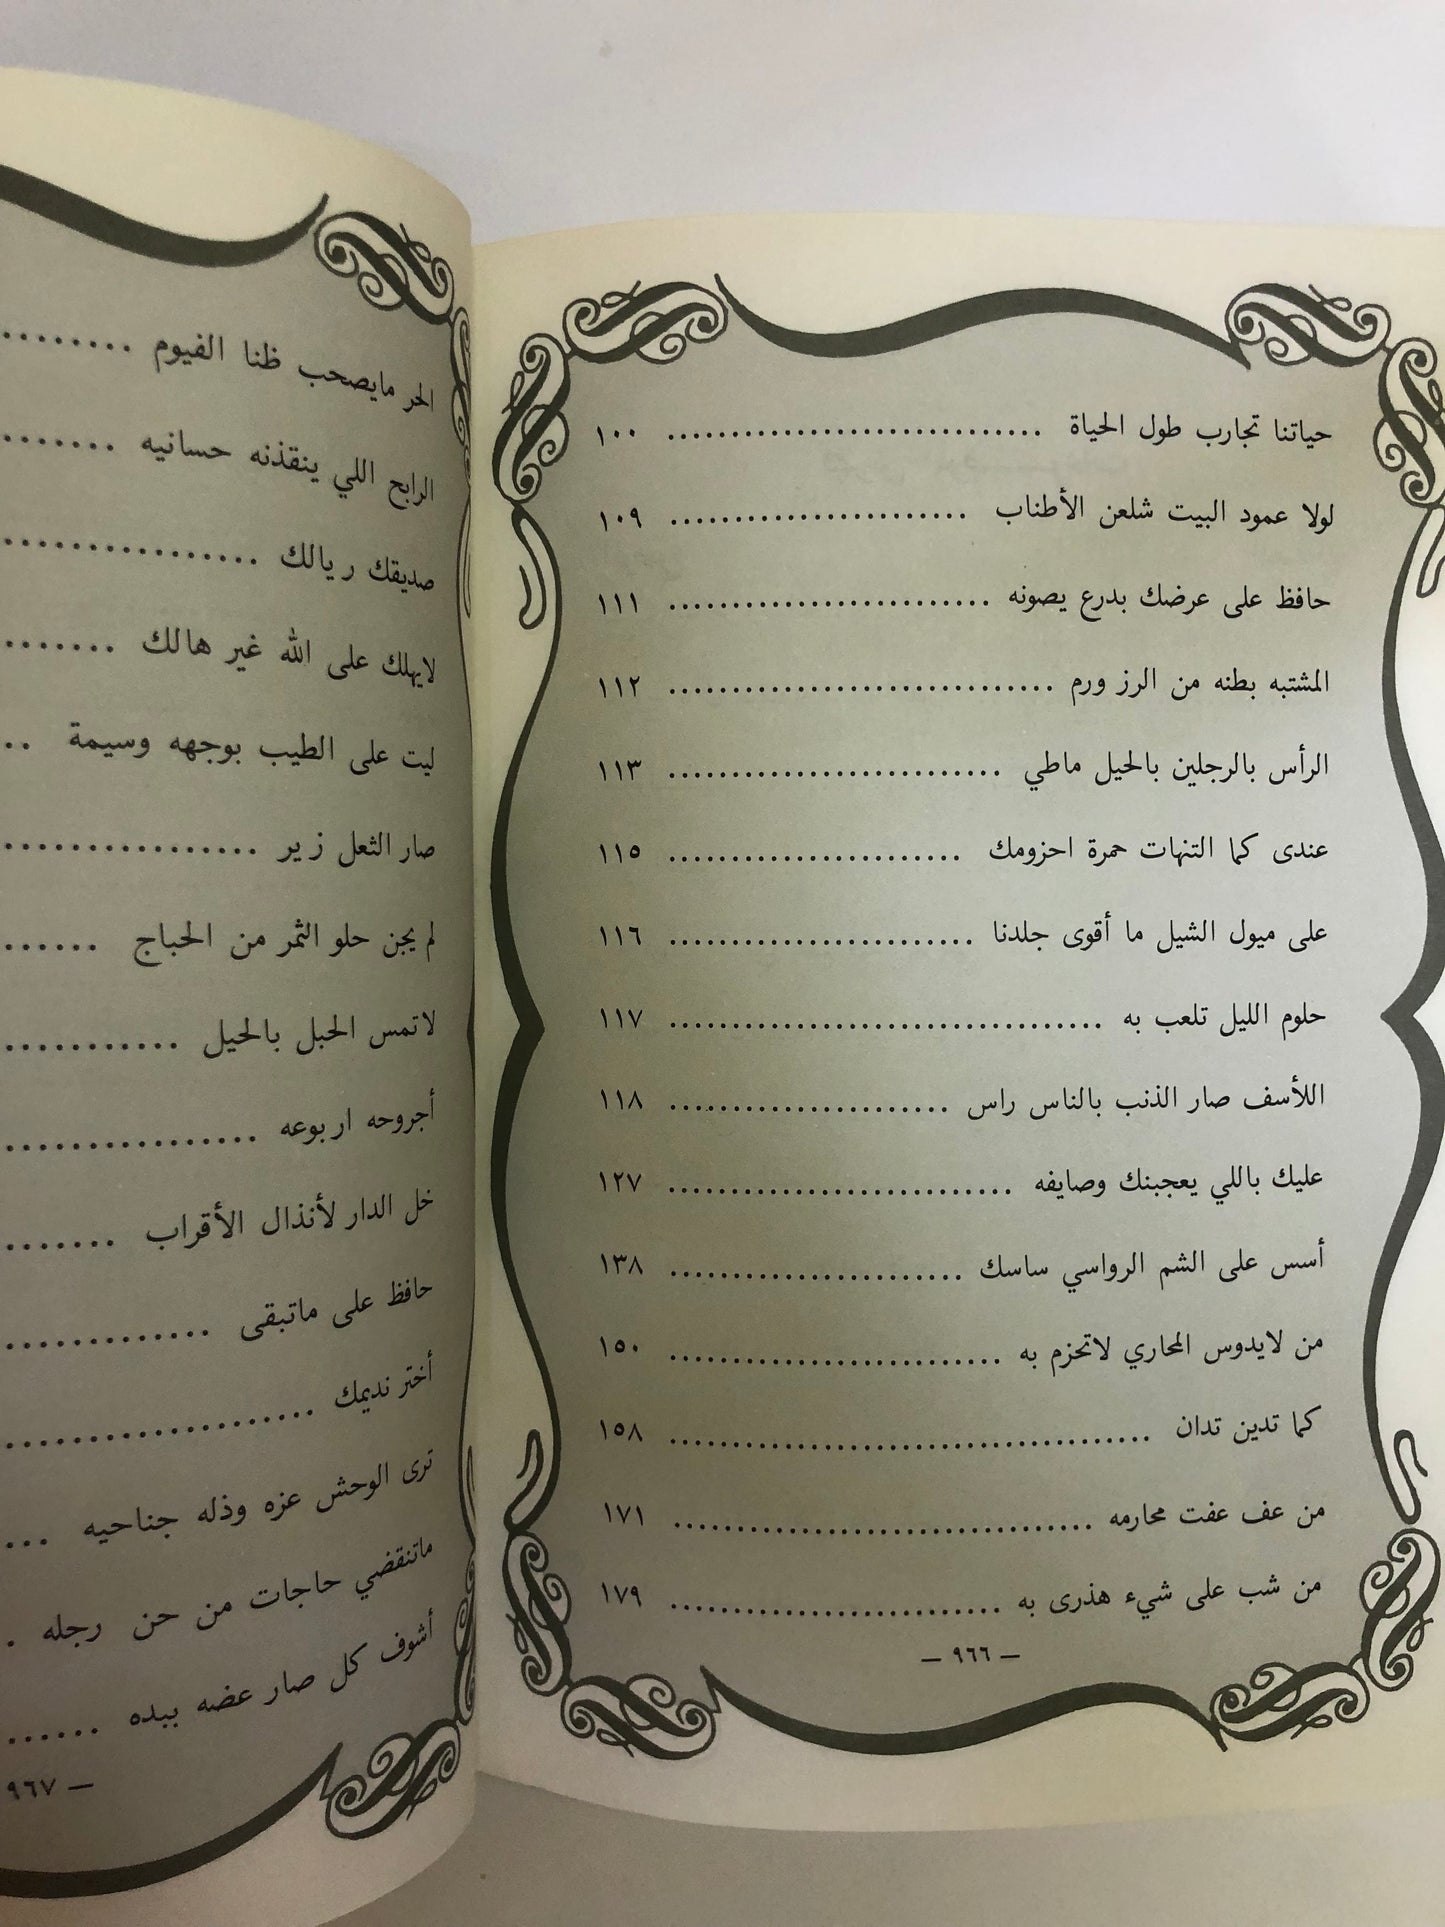 حياتنا تجارب طول الحياة .............................. ١٠٠
لولا عمود البيت شلعن الأطناب ........................ ١٠٩
حافظ على عرضك بدرع يصونه .......................... ١١١
المشتبه بطنه من الرز ورم ............................... ١١٢
الرأس بالرجلين بالحيل ماطي ........................... ١١٣
عندى كما التنهات حمرة احزومك ........................ ١١٥
على ميول الشيل ما أقوى جلدنا ......................... ١١٦
حلوم الليل تلعب به ................................... ١١٧
اللأسف صار الذنب بالناس راس ....................... ١١٨
عليك باللي يعجبنك وصايفه ............................ ١٢٧
أسس على الشم الرواسي ساسك ........................ ١٣٨
من لايدوس المحاري لاتحزم به ........................... ١٥٠
كما تدين تدان ....................................... ١٥٨
من عف عفت محارمه .................................. ١٧١
من شب على شيء هذرى به ........................... ١٧٩
— ٩٦٦ —
الحر مايصحب ظنا الفيوم ........
الرابح اللي ينقذنه حسانيه .......
صديقك ريالك ................
لايهلك على الله غير هالك .......
ليت على الطيب بوجهه وسيمة ..
صار الثعل زير ................
لم يجن حلو الثمر من الحباج ......
لاتمس الحبل بالحيل ...........
أجروحه اربوعه ................
خل الدار لأنذال الأقراب .......
حافظ على ماتبقى .............
أختر نديمك ....................
ترى الوحش عزه وذله جناحيه ...
ماتنقضي حاجات من حن رجله .
أشوف كل صار عضه بيده ......
— ٩٦٧